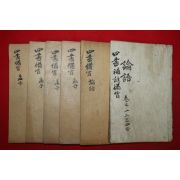 論語
四書補註備旨
四書備旨
論語
四書備旨
孟子
四書備旨
孟子
四書備旨
孟子
四書備旨
孟子